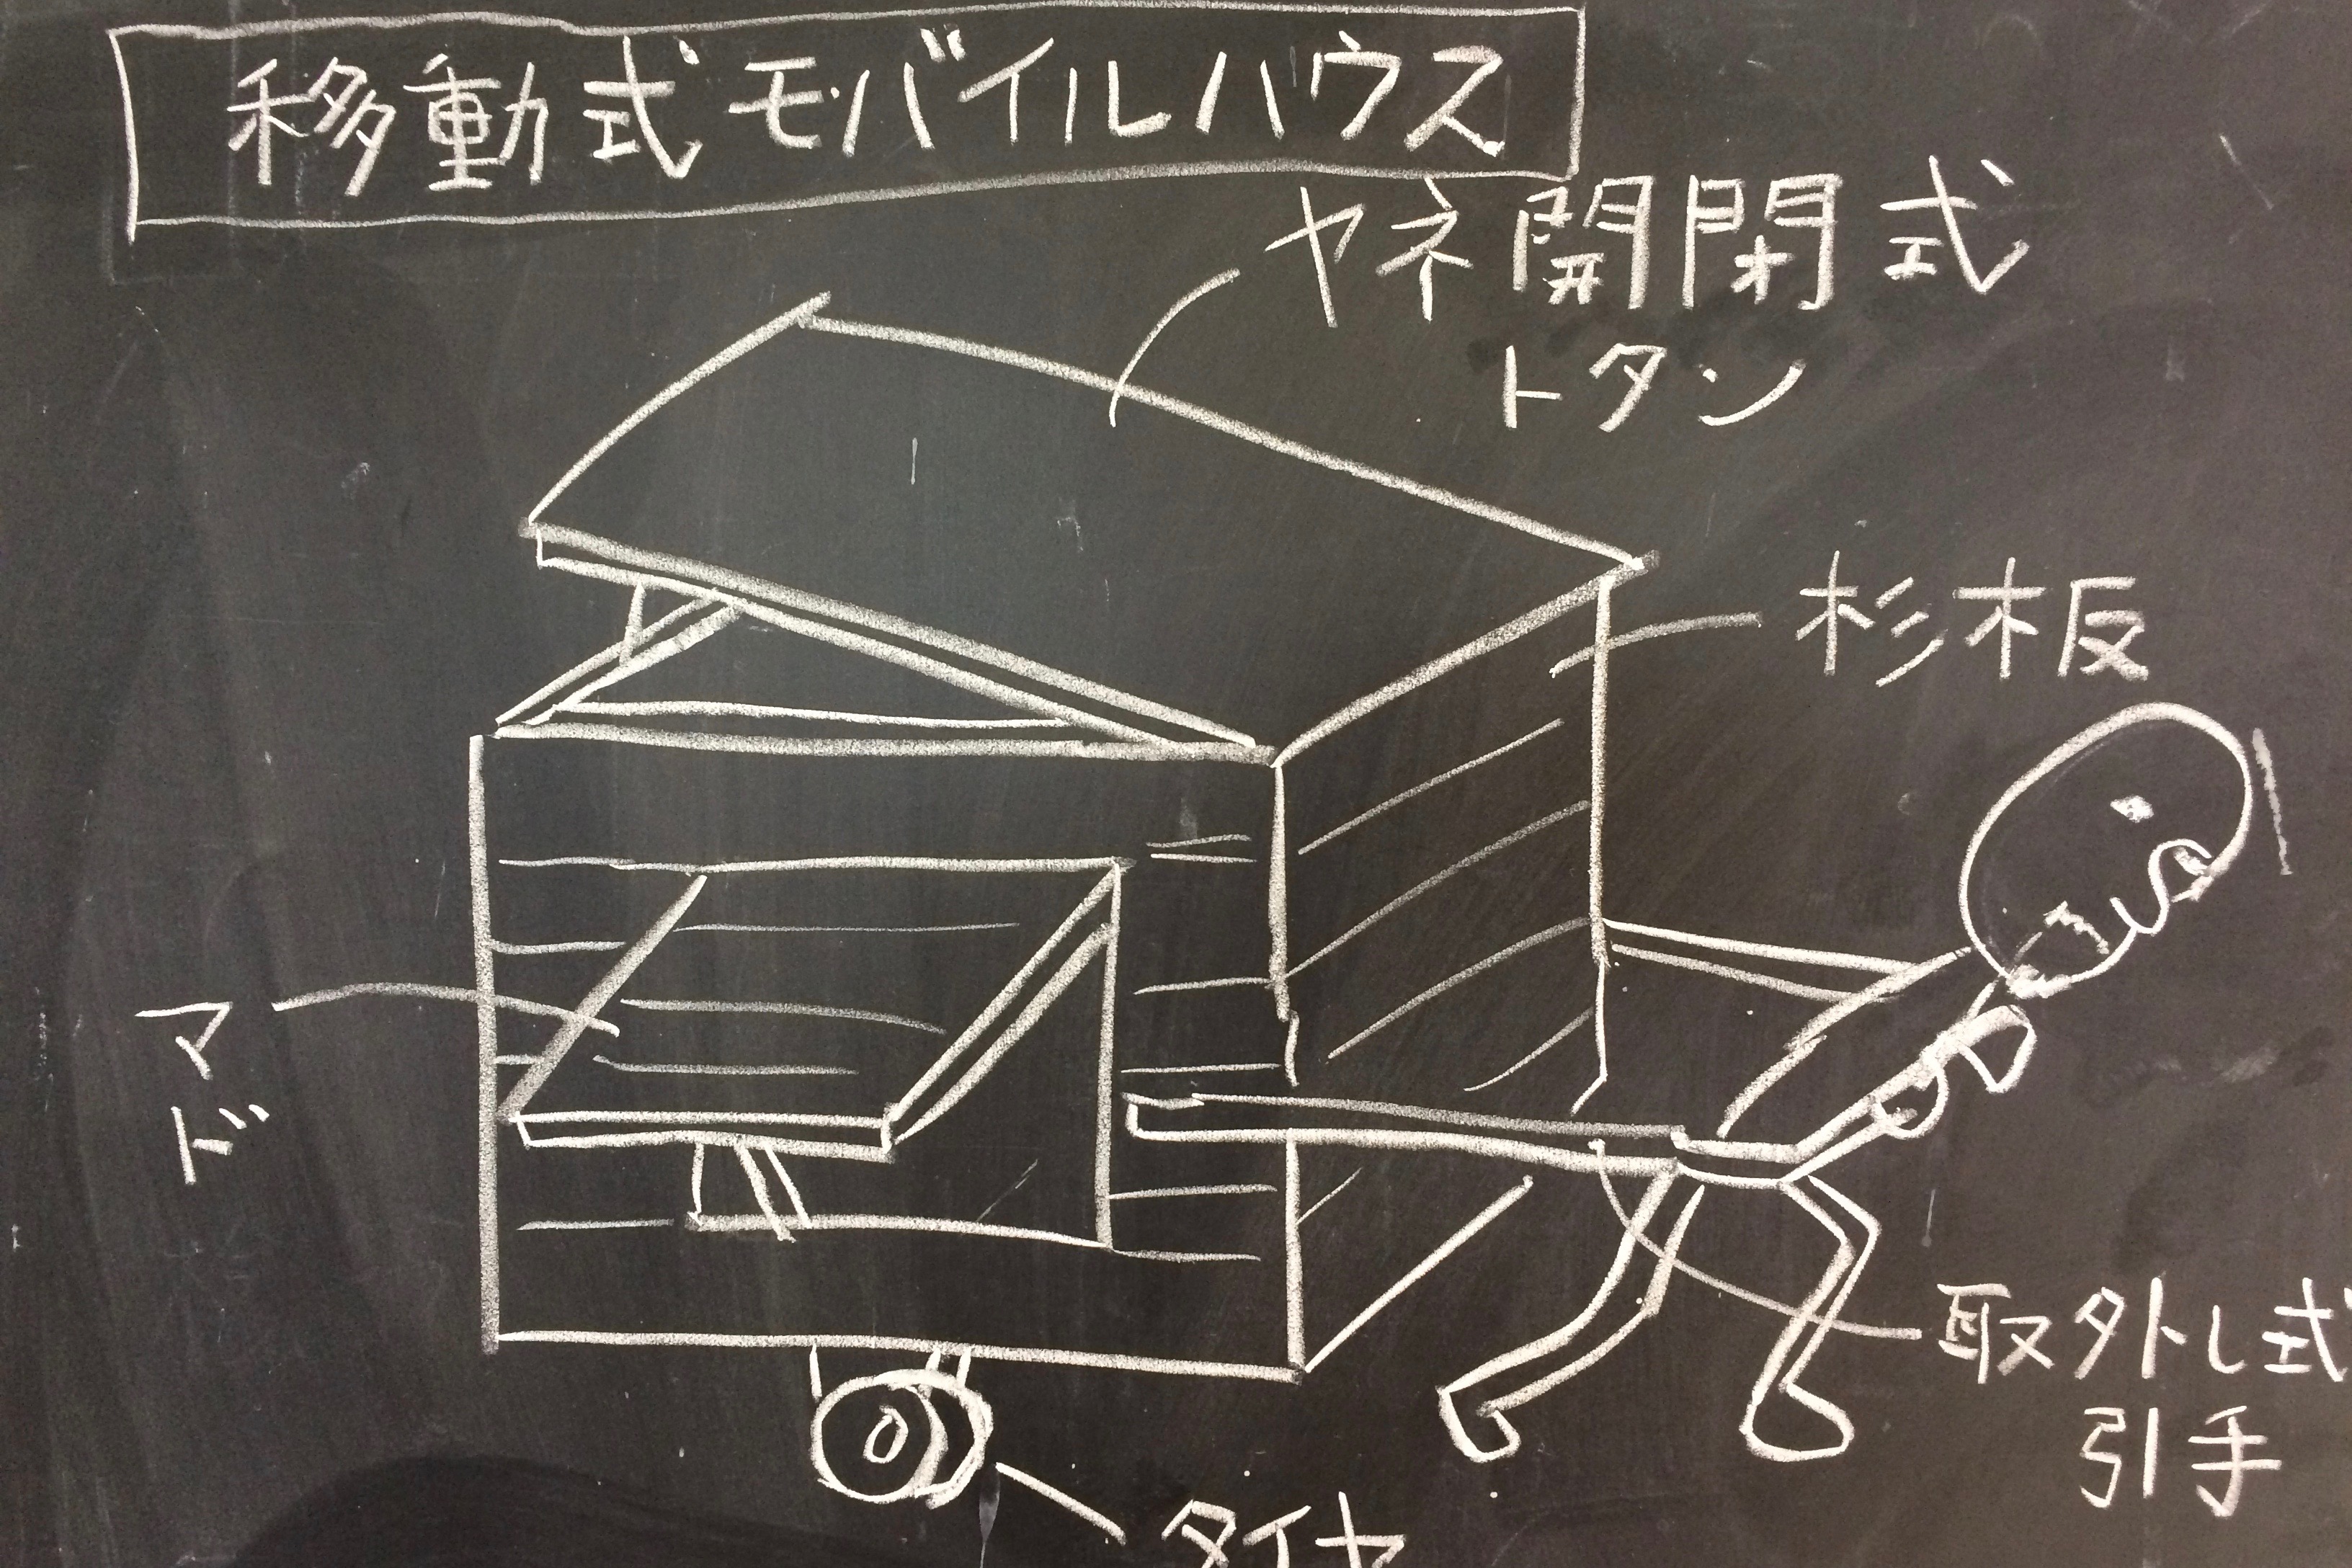 移動式モバイルハウス
ヤネ開閉式
トタン
杉板
マド
取外し式
引手
タイヤ